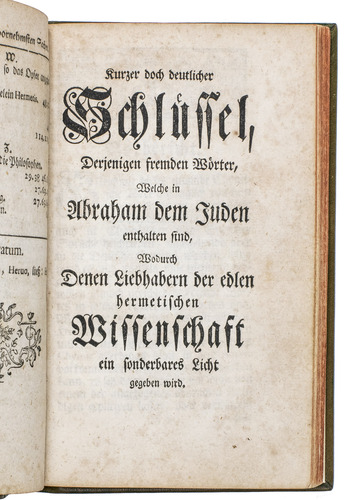 vornehmsten Sa
W.
so das Opus
elein Hermetis.
Z.
die Philosophen.
29. 38
27.
27.
ratum.
Kurzer doch deutlicher
Schlüssel,
Derjenigen fremden Wörter,
Welche in
Abraham dem Juden
enthalten sind,
Wodurch
Denen Liebhabern der edlen
hermetischen
Wissenschaft
ein sonderbares Licht
gegeben wird.